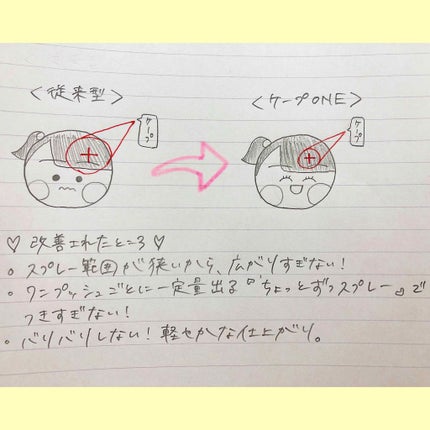 <従来型>
<ケープONE>
ケープ
ケープ
♡ 改善されたところ ♡
。スプレー範囲が狭いから、広がりすぎない!
。ワンプッシュごとに一定量出る『ちょっとずつスプレー』で
つきすぎない!
。バリバリしない!軽やかな仕上がり。